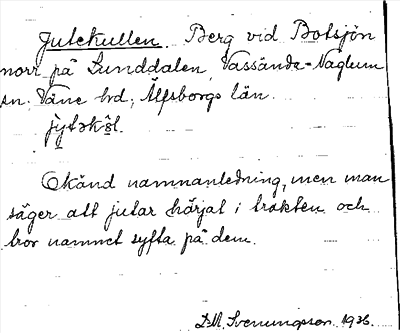 Jutekullen. Berg vid Botsjön
norr på Lunddalen, Vassända-Naglum
sn. Väne hd, Älfsborgs län.
jytəkul.
Okänd namnanledning, men man
säger att jutar härjat i trakten och
tror namnet syfta på dem.
D.M. Svenungson 1936